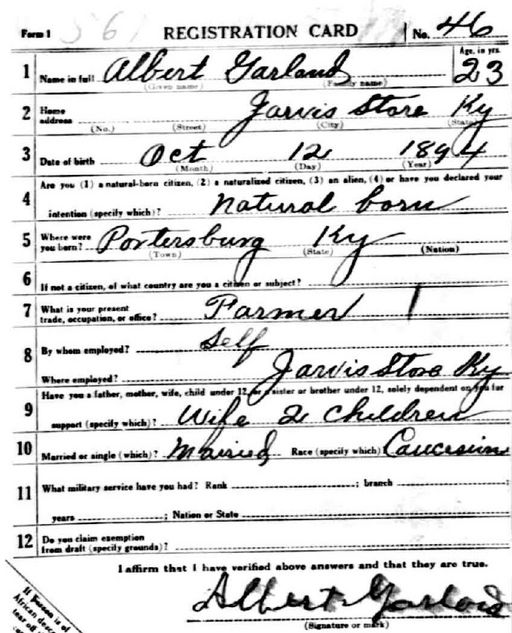 Form 1 REGISTRATION CARD No. 46
Age, in yrs.
1 Name in full Albert Garland 23
(Given name) (Family name)
2 Home address Jarvis Store Ky
(No.) (Street) (City) (State)
3 Date of birth Oct 12 1894
(Month) (Day) (Year)
Are you (1) a natural-born citizen, (2) a naturalized citizen, (3) an alien, (4) or have you declared your
4 intention (specify which)? Natural born
5 Where were you born? Portersburg Ky
(Town) (State) (Nation)
6 If not a citizen, of what country are you a citizen or subject?
7 What is your present trade, occupation, or office? Farmer
8 By whom employed? Self
Where employed? Jarvis Store Ky
Have you a father, mother, wife, child under 12, or a sister or brother under 12, solely dependent on you for
9 support (specify which)? Wife 2 children
10 Married or single (which)? Married Race (specify which) Caucasian
11 What military service have you had? Rank ; branch ;
years ; Nation or State
12 Do you claim exemption from draft (specify grounds)?
I affirm that I have verified above answers and that they are true.
Albert Garland
(Signature or mark)
If person is of
African
tear off